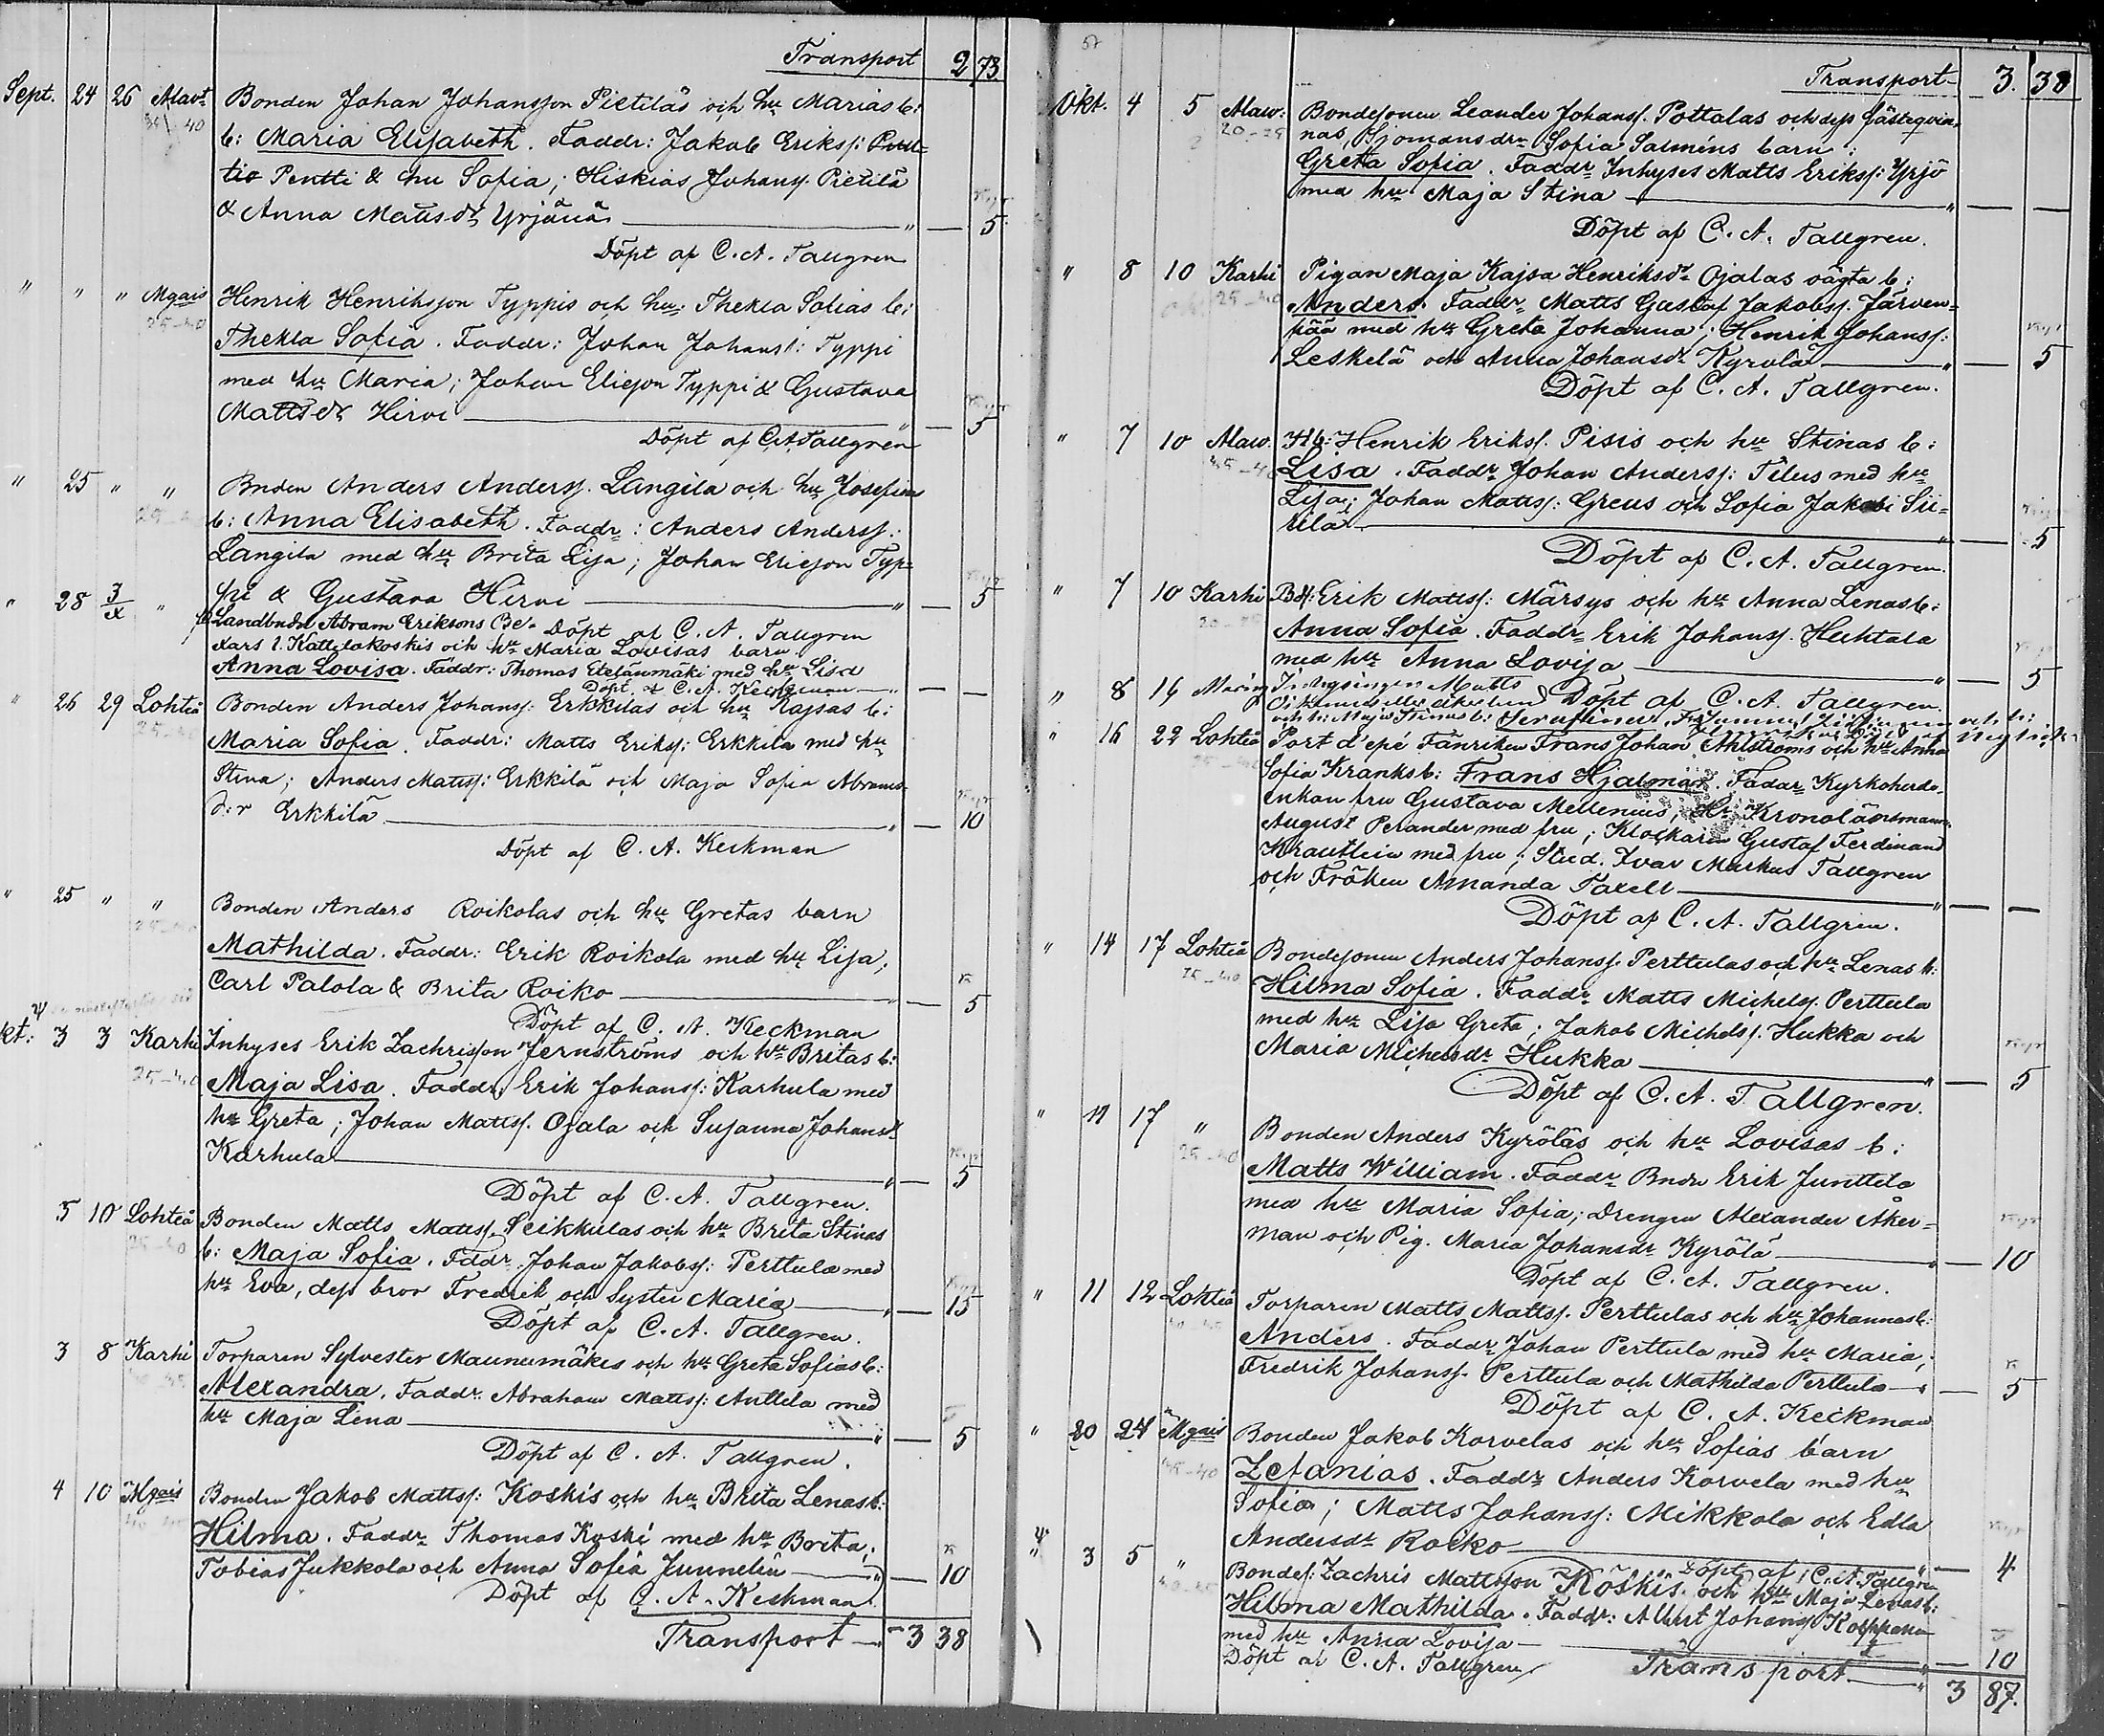 Transport 2 73
Sept. 24 26 Alavt. Bonden Johan Johansson Pietiläs och hu Marias b:
35 40 b: Maria Elisabeth. Faddr: Jakob Erikss:
tio Pentti & hu Sofia; Hiskias Johanss. Pietilä
& Anna Mattsdr Yrjänä " — 5
Döpt af C. A. Tallgren
" " " Mgais Henrik Henriksson Typpis och hu: Thekla Sofias b:
25-40 Thekla Sofia. Faddr: Johan Johanss: Typpi
med hu Maria; Johan Ericson Typpi & Gustava
Mattsdr Hirvi " — 5
Döpt af C. A. Tallgren
" 25 " " Bnden Anders Anderss. Langila och hu Josefinas
b: Anna Elisabeth. Faddr: Anders Anderss:
Langila med hu Brita Lisa; Johan Ericson Typ-
pi & Gustava Hirvi " — 5
" 28 3/X " Landbndn Abram Eriksons Be- Döpt af C. A. Tallgren
kars l. Kattilakoskis och hu Maria Lovisas barn
Anna Lovisa. Faddr: Thomas Eteläumäki med hu Lisa
Döpt af C. A. Keckman " — —
" 26 29 Lohteå Bonden Anders Johanss: Erkkilas och hu Kajsas b:
25-40 Maria Sofia. Faddr: Matts Erikss: Erkkila med hu
Stina; Anders Mattss: Erkkilä och Maja Sofia Abrams-
d:r Erkkilä " — 10
Döpt af C. A. Keckman
" 25 " " Bonden Anders Roikolas och hu Gretas barn
25-40 Mathilda. Faddr: Erik Roikola med hu Lisa;
Carl Palola & Brita Roiko " — 5
Döpt af C. A. Keckman
kt: 3 3 Karhi Inhyses Erik Zachrisson Jernströms och hu Britas b:
25-40 Maja Lisa. Faddr: Erik Johanss: Karhula med
hu Greta; Johan Mattss. Ojala och Susanna Johansdr
Karhula " — 5
Döpt af C. A. Tallgren.
5 10 Lohteå Bonden Matts Mattss. Seikkulas och hu Brita Stinas
25-40 b: Maja Sofia. Faddr Johan Jakobss: Perttula med
hu Eva, dess bror Fredrik och Syster Maria " — 15
Döpt af C. A. Tallgren.
3 8 Karhi Torparen Sylvester Maunumäkis och hu Greta Sofias b:
Alexandra. Faddr: Abraham Mattss: Anttila med
hu Maja Lena " — 5
Döpt af C. A. Tallgren.
4 10 Mgais Bonden Jakob Mattss: Koskis och hu Brita Lenas b:
Hilma. Faddr Thomas Koski med hu Brita;
Tobias Jukkola och Anna Sofia Junnelin " — 10
Döpt af C. A. Keckman
Transport — 3 38
57
Transport 3. 38
Okt. 4 5 Alaw: Bondesonen Leander Johanss. Pottalas och dess fästeqvin-
20-25 nas, Sjomansdr Sofia Salmèns barn:
Greta Sofia. Faddr Inhyses Matts Erikss: Yrjö
med hu Maja Stina " — —
Döpt af C. A. Tallgren.
" 8 10 Karhi Pigan Maja Kajsa Henriksdr Ojalas oägta b:
25-40 Anders. Faddr Matts Gustaf Jakobss. Järven-
pää med hu Greta Johanna; Henrik Johanss:
Leskelä och Anna Johansdr Kyrölä " — 5
Döpt af C. A. Tallgren.
" 7 10 Alaw. Hb: Henrik Erikss. Pisis och hu Stinas b:
35-40 Lisa. Faddr Johan Anderss: Tilus med hu
Lisa; Johan Mattss: Greus och Sofia Jakobi Sii-
lilä " — 5
Döpt af C. A. Tallgren.
" 7 10 Karhi Bd: Erik Mattss: Märsys och hu Anna Lenas b:
Anna Sofia. Faddr Erik Johanss. Huhtala
med hu Anna Lovisa " — 5
" 8 14 Maring Inhysingen Matts Döpt af C. A. Tallgren.
och h: Maja Stinas b: Serafina.
" 16 22 Lohteå Port d'epé Fänriken Frans Johan Ahlströms och hu Anna
Sofia Kranks b: Frans Hjalmar. Faddr Kyrkoherde-
enkan fru Gustava Mellenius; Hr Kronolänsmann
August Perander med fru; Klockaren Gustaf Ferdinand
Krautlein med fru; Stud. Ivar Markus Tallgren
och Fröken Amanda Taxell " — —
Döpt af C. A. Tallgren.
" 14 17 Lohteå Bondesonen Anders Johanss. Perttulas och hu Lenas b:
25-40 Hilma Sofia. Faddr Matts Michelss. Perttula
med hu Lisa Greta; Jakob Michelss. Hukka och
Maria Michelsdr Hukka " — 5
Döpt af C. A. Tallgren.
" 11 17 " Bonden Anders Kyröläs och hu Lovisas b:
25-40 Matts William. Faddr Bndn Erik Junttila
med hu Maria Sofia; Drengen Alexander Åker-
man och Pig. Maria Johansdr Kyrölä " — 10
Döpt af C. A. Tallgren.
" 11 12 Lohteå Torparen Matts Mattss. Perttulas och hu Johannas b:
Anders. Faddr Johan Perttula med hu Maria;
Fredrik Johanss. Perttula och Mathilda Perttula " — 5
Döpt af C. A. Keckman
" 20 24 Mgais Bonden Jakob Korvelas och hu Sofias barn
35-40 Zefanias. Faddr Anders Korvela med hu
Sofia; Matts Johanss: Mikkola och Edla
Andersdr Roiko " — 4
Döpt af C. A. Tallgren
" 3 5 " Bondes: Zachris Mattsson Koskis och hu Maja Lenas b:
Hilma Mathilda. Faddr: Albert Johanss Kolppanen
med hu Anna Lovisa " — 10
Döpt af C. A. Tallgren
Transport " 3 87.